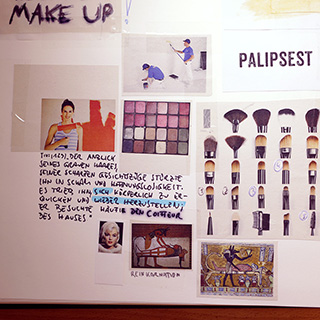 MAKE UP
PALIPSEST
DER ANBLICK
SEINES GRAUEN HAARES,
SEINER SCHARFEN GESICHTSZÜGE STÜRZTE
IHN IN SCHAM UND HOFFNUNGSLOSIGKEIT.
ES TRIEB IHN, SICH KÖRPERLICH ZU ER-
QUICKEN UND WIEDER HERZUSTELLEN;
ER BESUCHTE HÄUFIG DEN COIFFEUR
DES HAUSES"
REINKARNATION